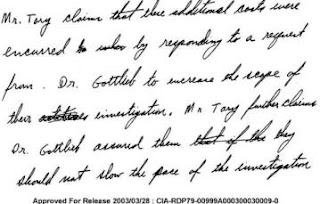 Mr. Tory claims that these additional costs were
encurred by responding to a request
from. Dr. Gottlieb to increase the scope of
their investigation. Mr Tory further claims
Dr. Gottlieb assured them they
should not slow the pace of the investigation
Approved For Release 2003/03/28 : CIA-RDP79-00999A000300030009-0